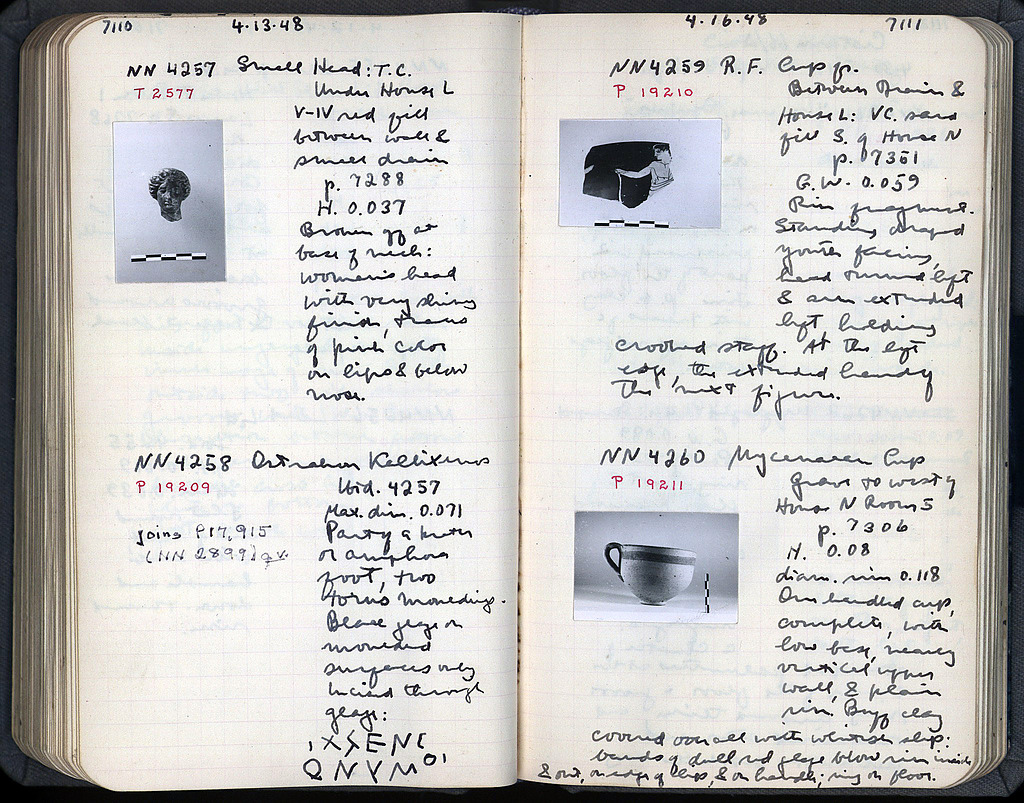 7110
4.13.48
NN 4257 Small Head: T.C.
T 2577
Under House L
V-IV red fill
between wall &
small drain
p. 7288
H. 0.037
Broken off at
base of neck:
woman's head
with very shiny
finish, traces
of pink color
on lips & below
nose.
NN 4258 Ostrakon Kallixenos
P 19209
Ibid. 4257
Max. dim. 0.071
joins P 17,915
(NN 2899) q.v.
Part of a krater
or amphora
foot, two
torus mouldings.
Black glaze on
moulded
surfaces only
Incised through
glaze:
ΙΧSΕΝ
ΟΝΥΜΟ
4.16.48
7111
NN 4259 R.F. Cup fr.
P 19210
Between Drain &
House L: VC. sand
fill S. of House N
p. 7351
G.W. 0.059
Rim fragment.
Standing draped
youth facing,
head turned left
& arm extended
left, holding
crooked staff. At the left
edge, the extended hand of
the next figure.
NN 4260 Mycenaean Cup
P 19211
Grave to west of
House N Room 5
p. 7306
H. 0.08
diam. rim 0.118
One handled cup,
complete, with
low base, nearly
vertical upper
wall, & plain
rim. Buff clay
covered over all with whitish slip:
bands of dull red glaze below rim inside
& out, on edge of lip, & on handle; ring on floor.